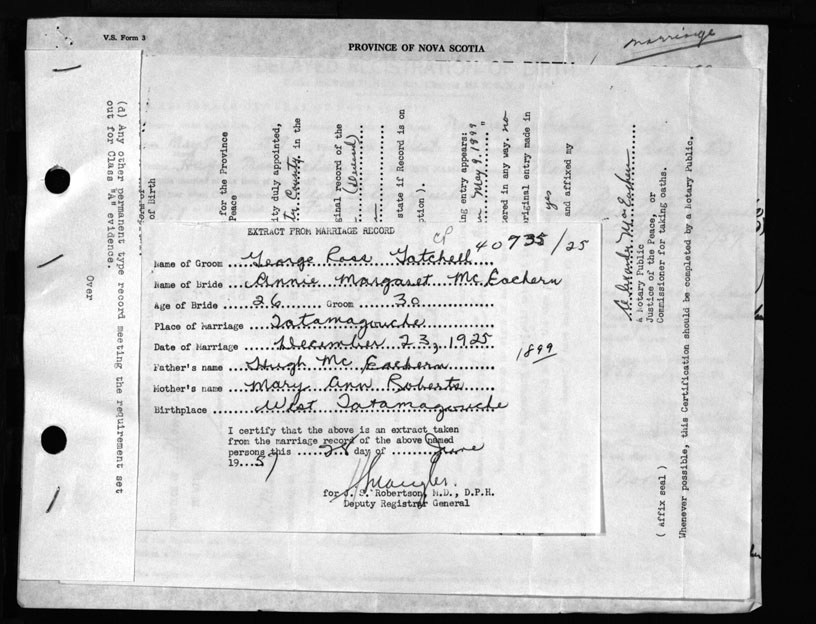 V.S. Form 3
PROVINCE OF NOVA SCOTIA
marriage
(d) Any other permanent type record meeting the requirement set
out for Class "A" evidence.
Over
of Birth
for the Province
Peace
ity duly appointed,
County, in the
ginal record of the
(Deceased)
state if Record is on
ption ).
ing entry appears:
May 9, 1899 "
ered in any way. no
original entry made in
yes
and affixed my
EXTRACT FROM MARRIAGE RECORD
40735/25
Name of Groom George Ross Gatchell
Name of Bride Annie Margaret McEachern
Age of Bride 26 Groom 30
Place of Marriage Tatamagouche
Date of Marriage December 23, 1925
1899
Father's name Hugh McEachern
Mother's name Mary Ann Roberts
Birthplace West Tatamagouche
I certify that the above is an extract taken
from the marriage record of the above named
persons this 28 day of June
19 57
for J. S. Robertson, M.D., D.P.H.
Deputy Registrar General
Alexander McEachern
A Notary Public
Justice of the Peace, or
Commissioner for taking oaths.
( affix seal )
Whenever possible, this Certification should be completed by a Notary Public.